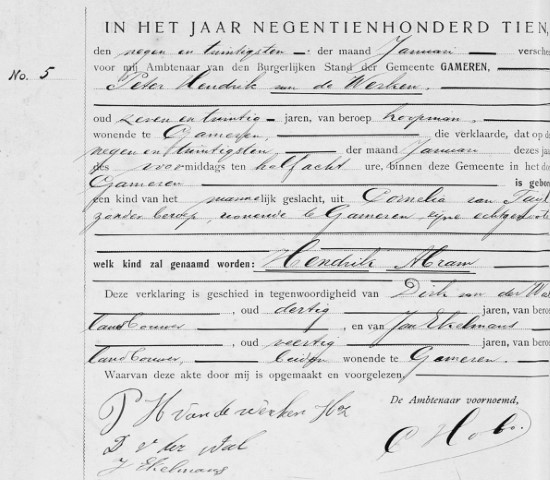 IN HET JAAR NEGENTIENHONDERD TIEN,
den negen en twintigsten der maand Januari versche
No. 5
voor mij Ambtenaar van den Burgerlijken Stand der Gemeente GAMEREN,
Peter Hendrik van de Werken,
oud zeven en twintig jaren, van beroep koopman,
wonende te Gameren, die verklaarde, dat op d
negen en twintigsten, der maand Januari dezes ja
des voormiddags ten half acht ure, binnen deze Gemeente in het
Gameren is gebo
een kind van het mannelijk geslacht, uit Cornelia van
zonder beroep, wonende te Gameren zijne echtgenoot
welk kind zal genaamd worden: Hendrik Abram
Deze verklaring is geschied in tegenwoordigheid van Dirk van der Wa
landbouwer, oud dertig jaren, van bero
landbouwer, en van Jan Ekelmans
oud veertig jaren, van bero
landbouwer, beiden wonende te Gameren.
Waarvan deze akte door mij is opgemaakt en voorgelezen.
De Ambtenaar voornoemd,
P H van de Werken Hz
D v der Wal
J Ekelmans
C